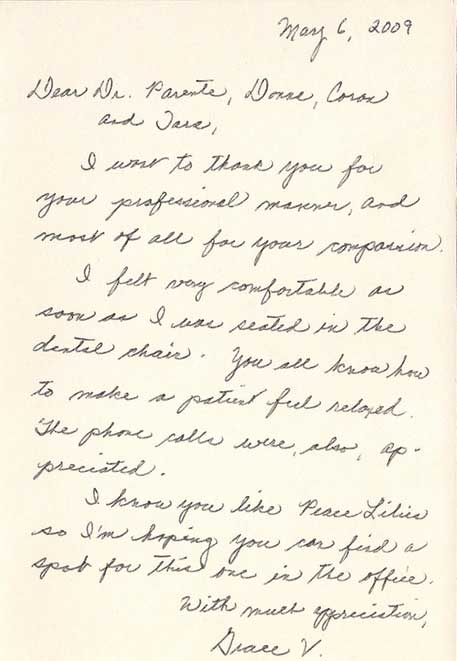 May 6, 2009
Dear Dr. Parente, Donna, Coran
and Tara,
I want to thank you for
your professional manner, and
most of all for your compassion.
I felt very comfortable as
soon as I was seated in the
dental chair. You all know how
to make a patient feel relaxed.
The phone calls were, also, ap-
preciated.
I know you like Peace Lilies
so I'm hoping you can find a
spot for this one in the office.
With much appreciation,
Grace V.